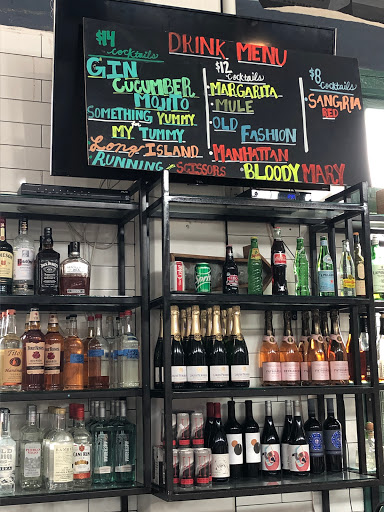 DRINK MENU
$14
cocktails
GIN
CUCUMBER
MOJITO
SOMETHING YUMMY
MY TUMMY
LONG ISLAND
RUNNING SCISSORS
$12
cocktails
MARGARITA
MULE
OLD FASHION
MANHATTAN
BLOODY MARY
$8
cocktails
SANGRIA
RED